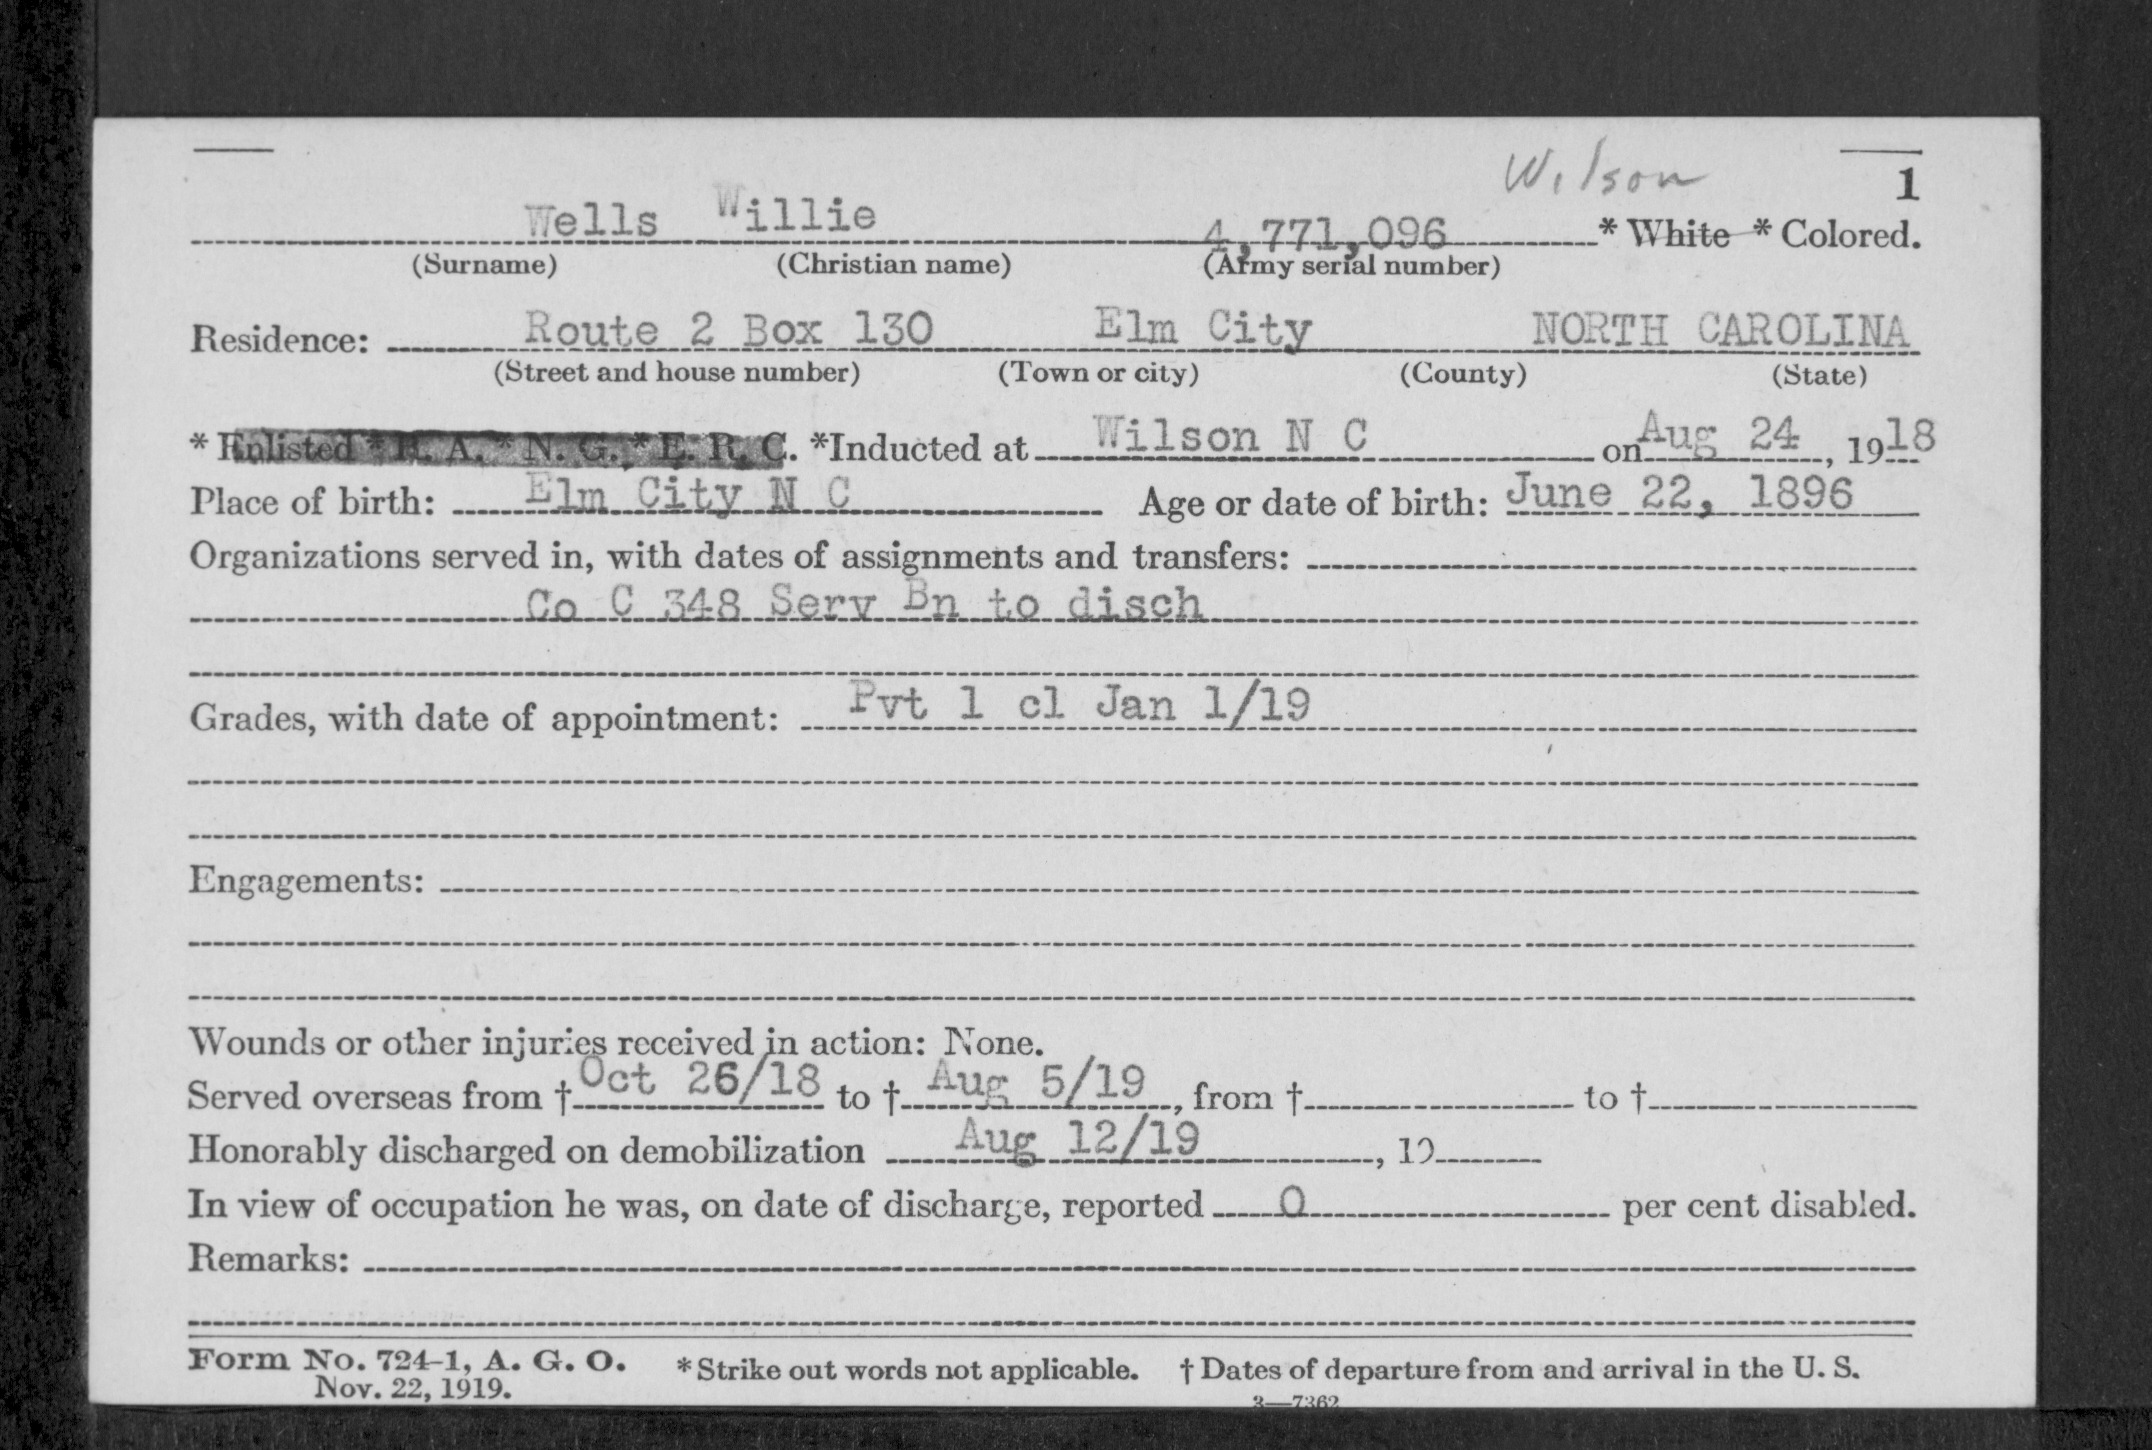 Wilson
1
Wells Willie 4,771,096 * White * Colored.
(Surname) (Christian name) (Army serial number)
Residence: Route 2 Box 130 Elm City NORTH CAROLINA
(Street and house number) (Town or city) (County) (State)
* Enlisted * R. A. * N. G. * E. R. C. *Inducted at Wilson N C on Aug 24, 1918
Place of birth: Elm City N C Age or date of birth: June 22, 1896
Organizations served in, with dates of assignments and transfers:
Co C 348 Serv Bn to disch
Grades, with date of appointment: Pvt 1 cl Jan 1/19
Engagements:
Wounds or other injuries received in action: None.
Served overseas from † Oct 26/18 to † Aug 5/19, from † to †
Honorably discharged on demobilization Aug 12/19, 19
In view of occupation he was, on date of discharge, reported 0 per cent disabled.
Remarks:
Form No. 724-1, A. G. O. * Strike out words not applicable. † Dates of departure from and arrival in the U. S.
Nov. 22, 1919.
3—7362